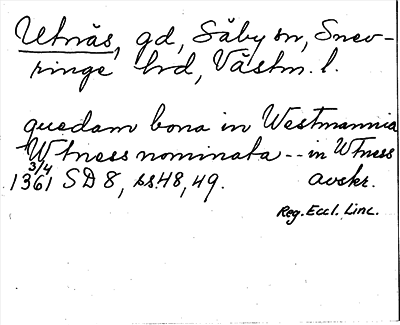 Utnäs, gd, Säby sn, Snev-
ringe hd, Västm. l.
quedam bona in Westmannia
Wtness nominata -- in Wtness
3/4
1361 SD 8, ss. 48, 49. avskr.
Reg. Eccl. Linc.